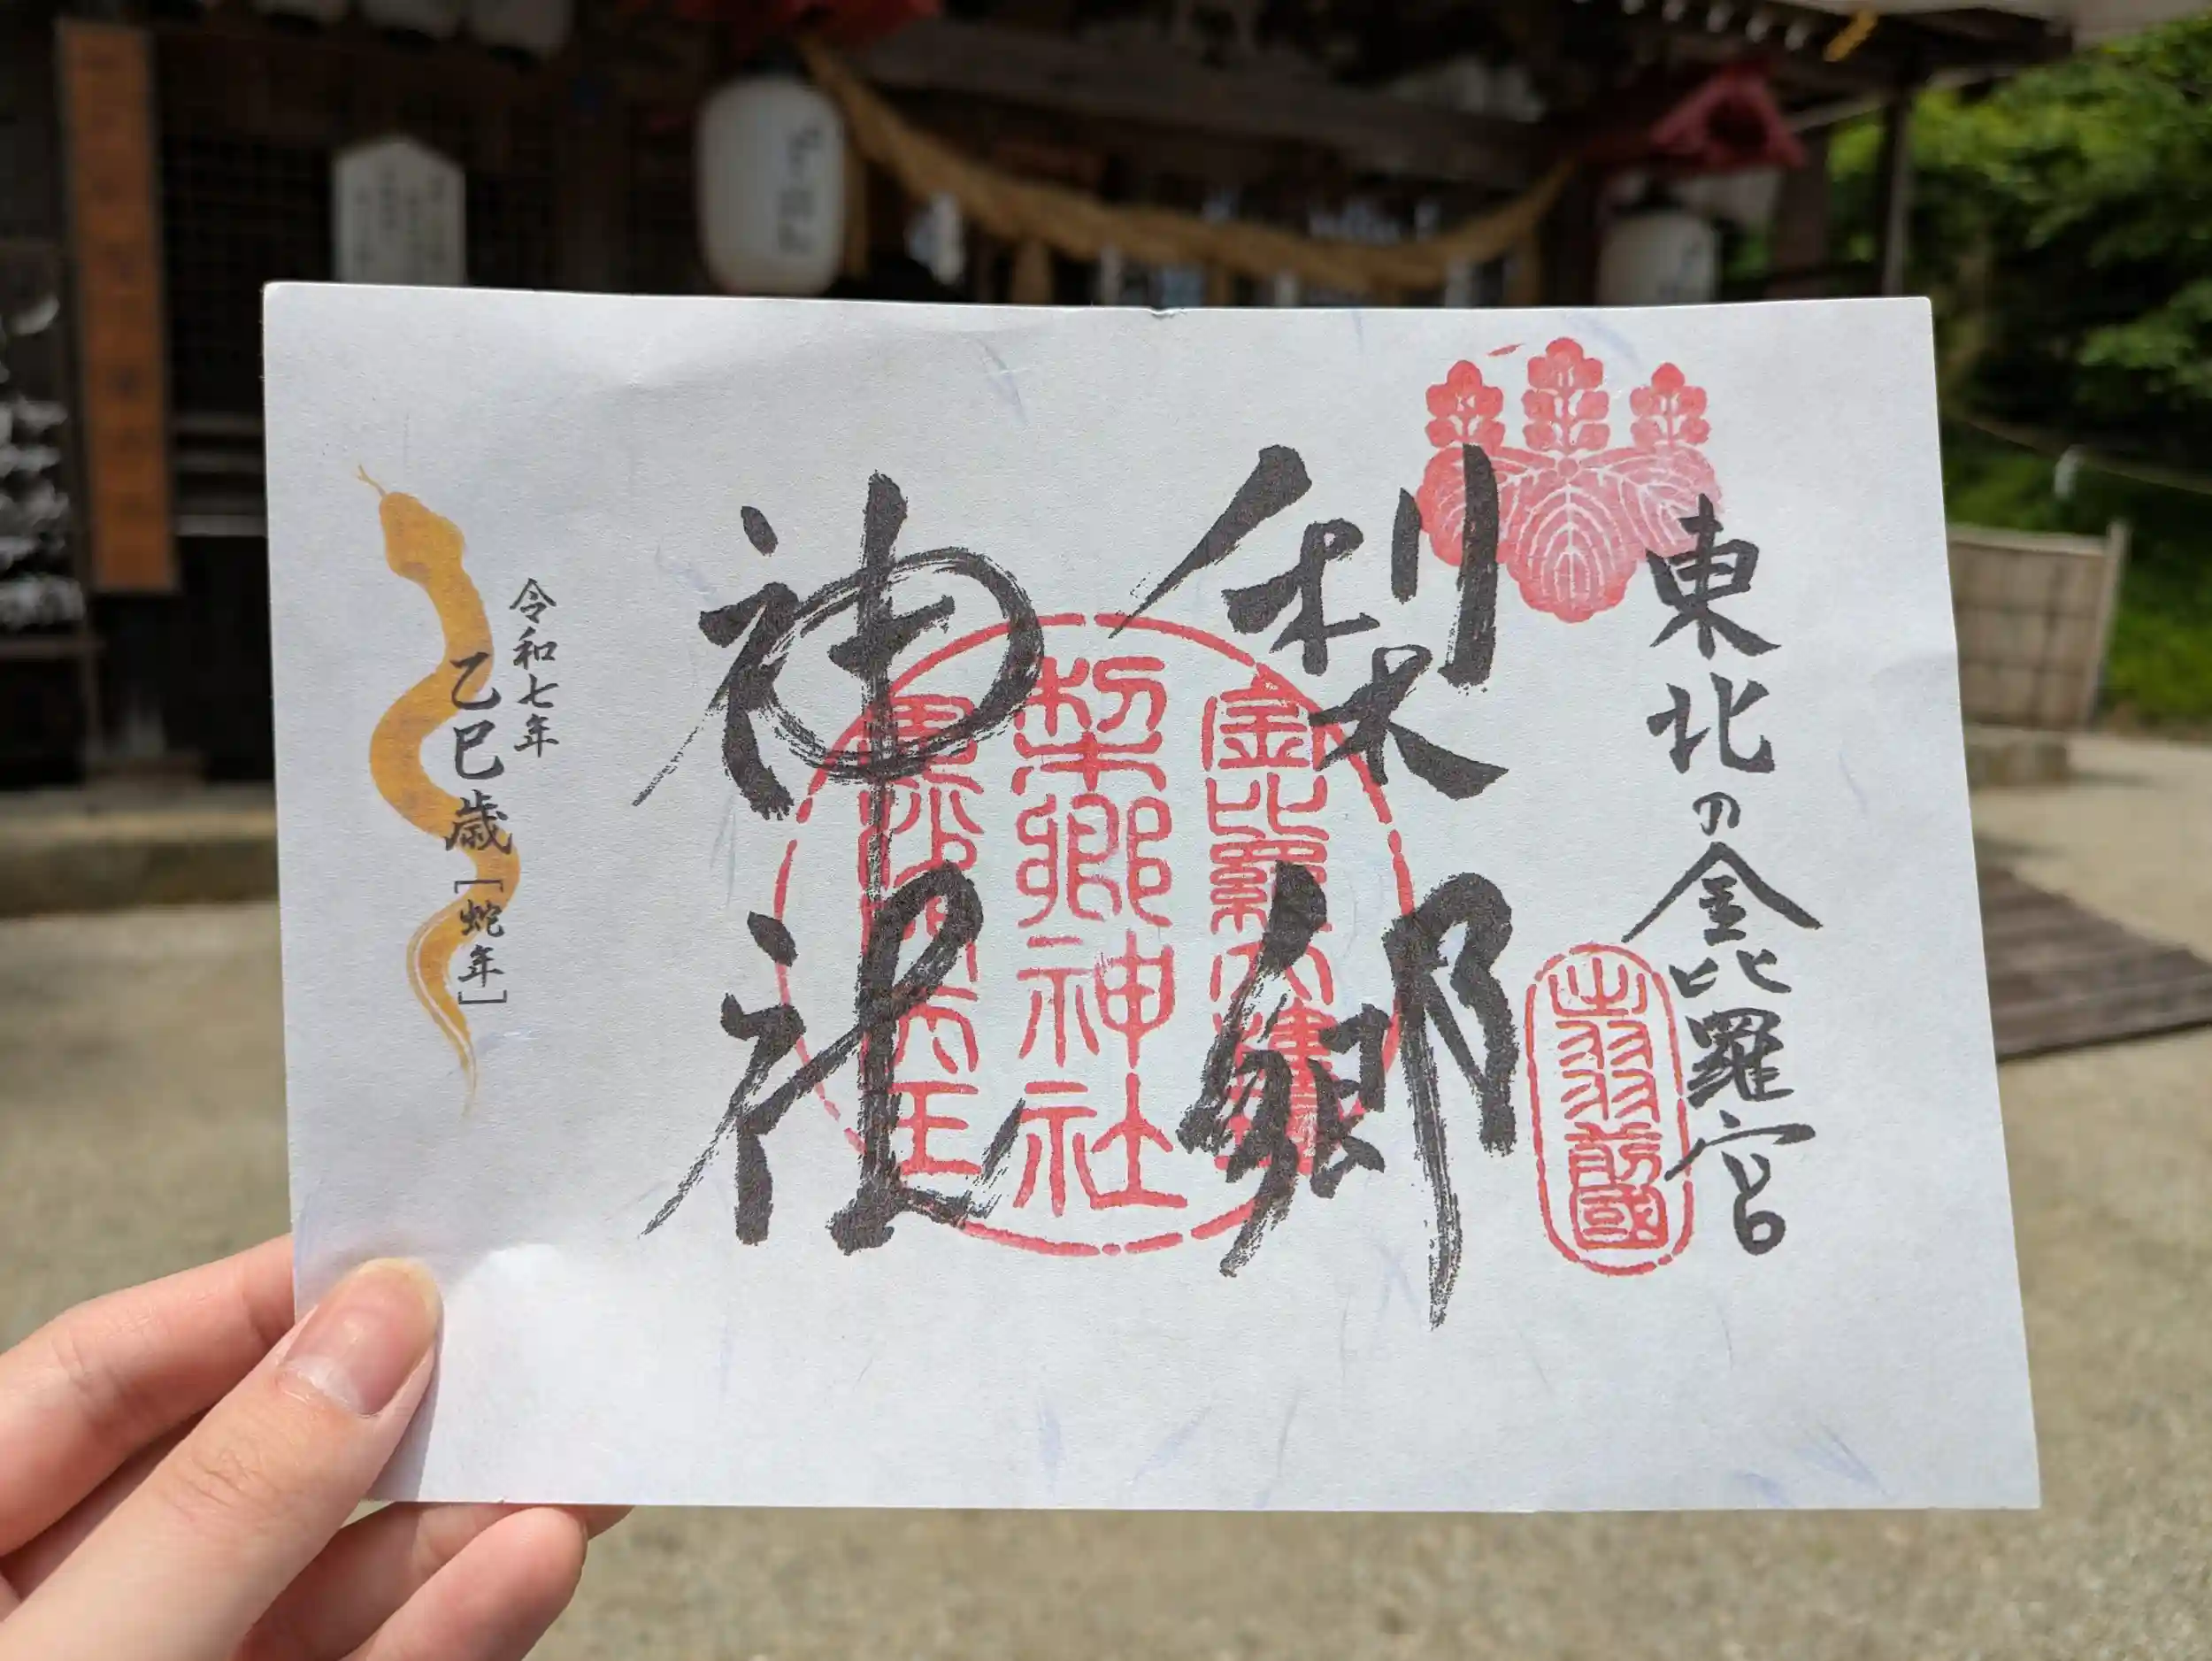 東北の金比羅宮
出羽前國
梨郷
神社
金比羅大権現
梨郷神社
毘沙門天王
令和七年
乙巳歳［蛇年］